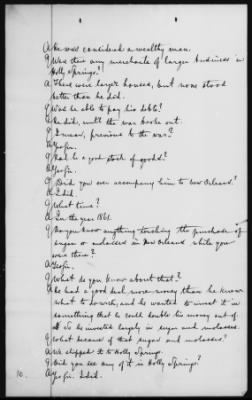 A. He was considered a wealthy man.
Q. Was there any merchants of larger business in
Holly Springs?
A. There were larger houses, but none stood
better than he did.
Q. Was he able to pay his debts?
A. He did, until the war broke out.
Q. I mean, previous to the war?
A. Yes sir.
Q. Had he a good stock of goods?
A. Yes sir.
Q. Did you ever accompany him to New Orleans?
A. I did.
Q. What time?
A. In the year 1861.
Q. Do you know anything touching the purchase of
sugar or molasses in New Orleans while you
were there?
A. Yes sir.
Q. What do you know about that?
A. He had a good deal more money than he knew
what to do with, and he wanted to invest it in
something that he could double his money out of
& So he invested largely in sugar and molasses.
Q. What became of that sugar and molasses?
A. We shipped it to Holly Springs.
Q. Did you see any of it in Holly Springs?
A. Yes sir. I did.
10.